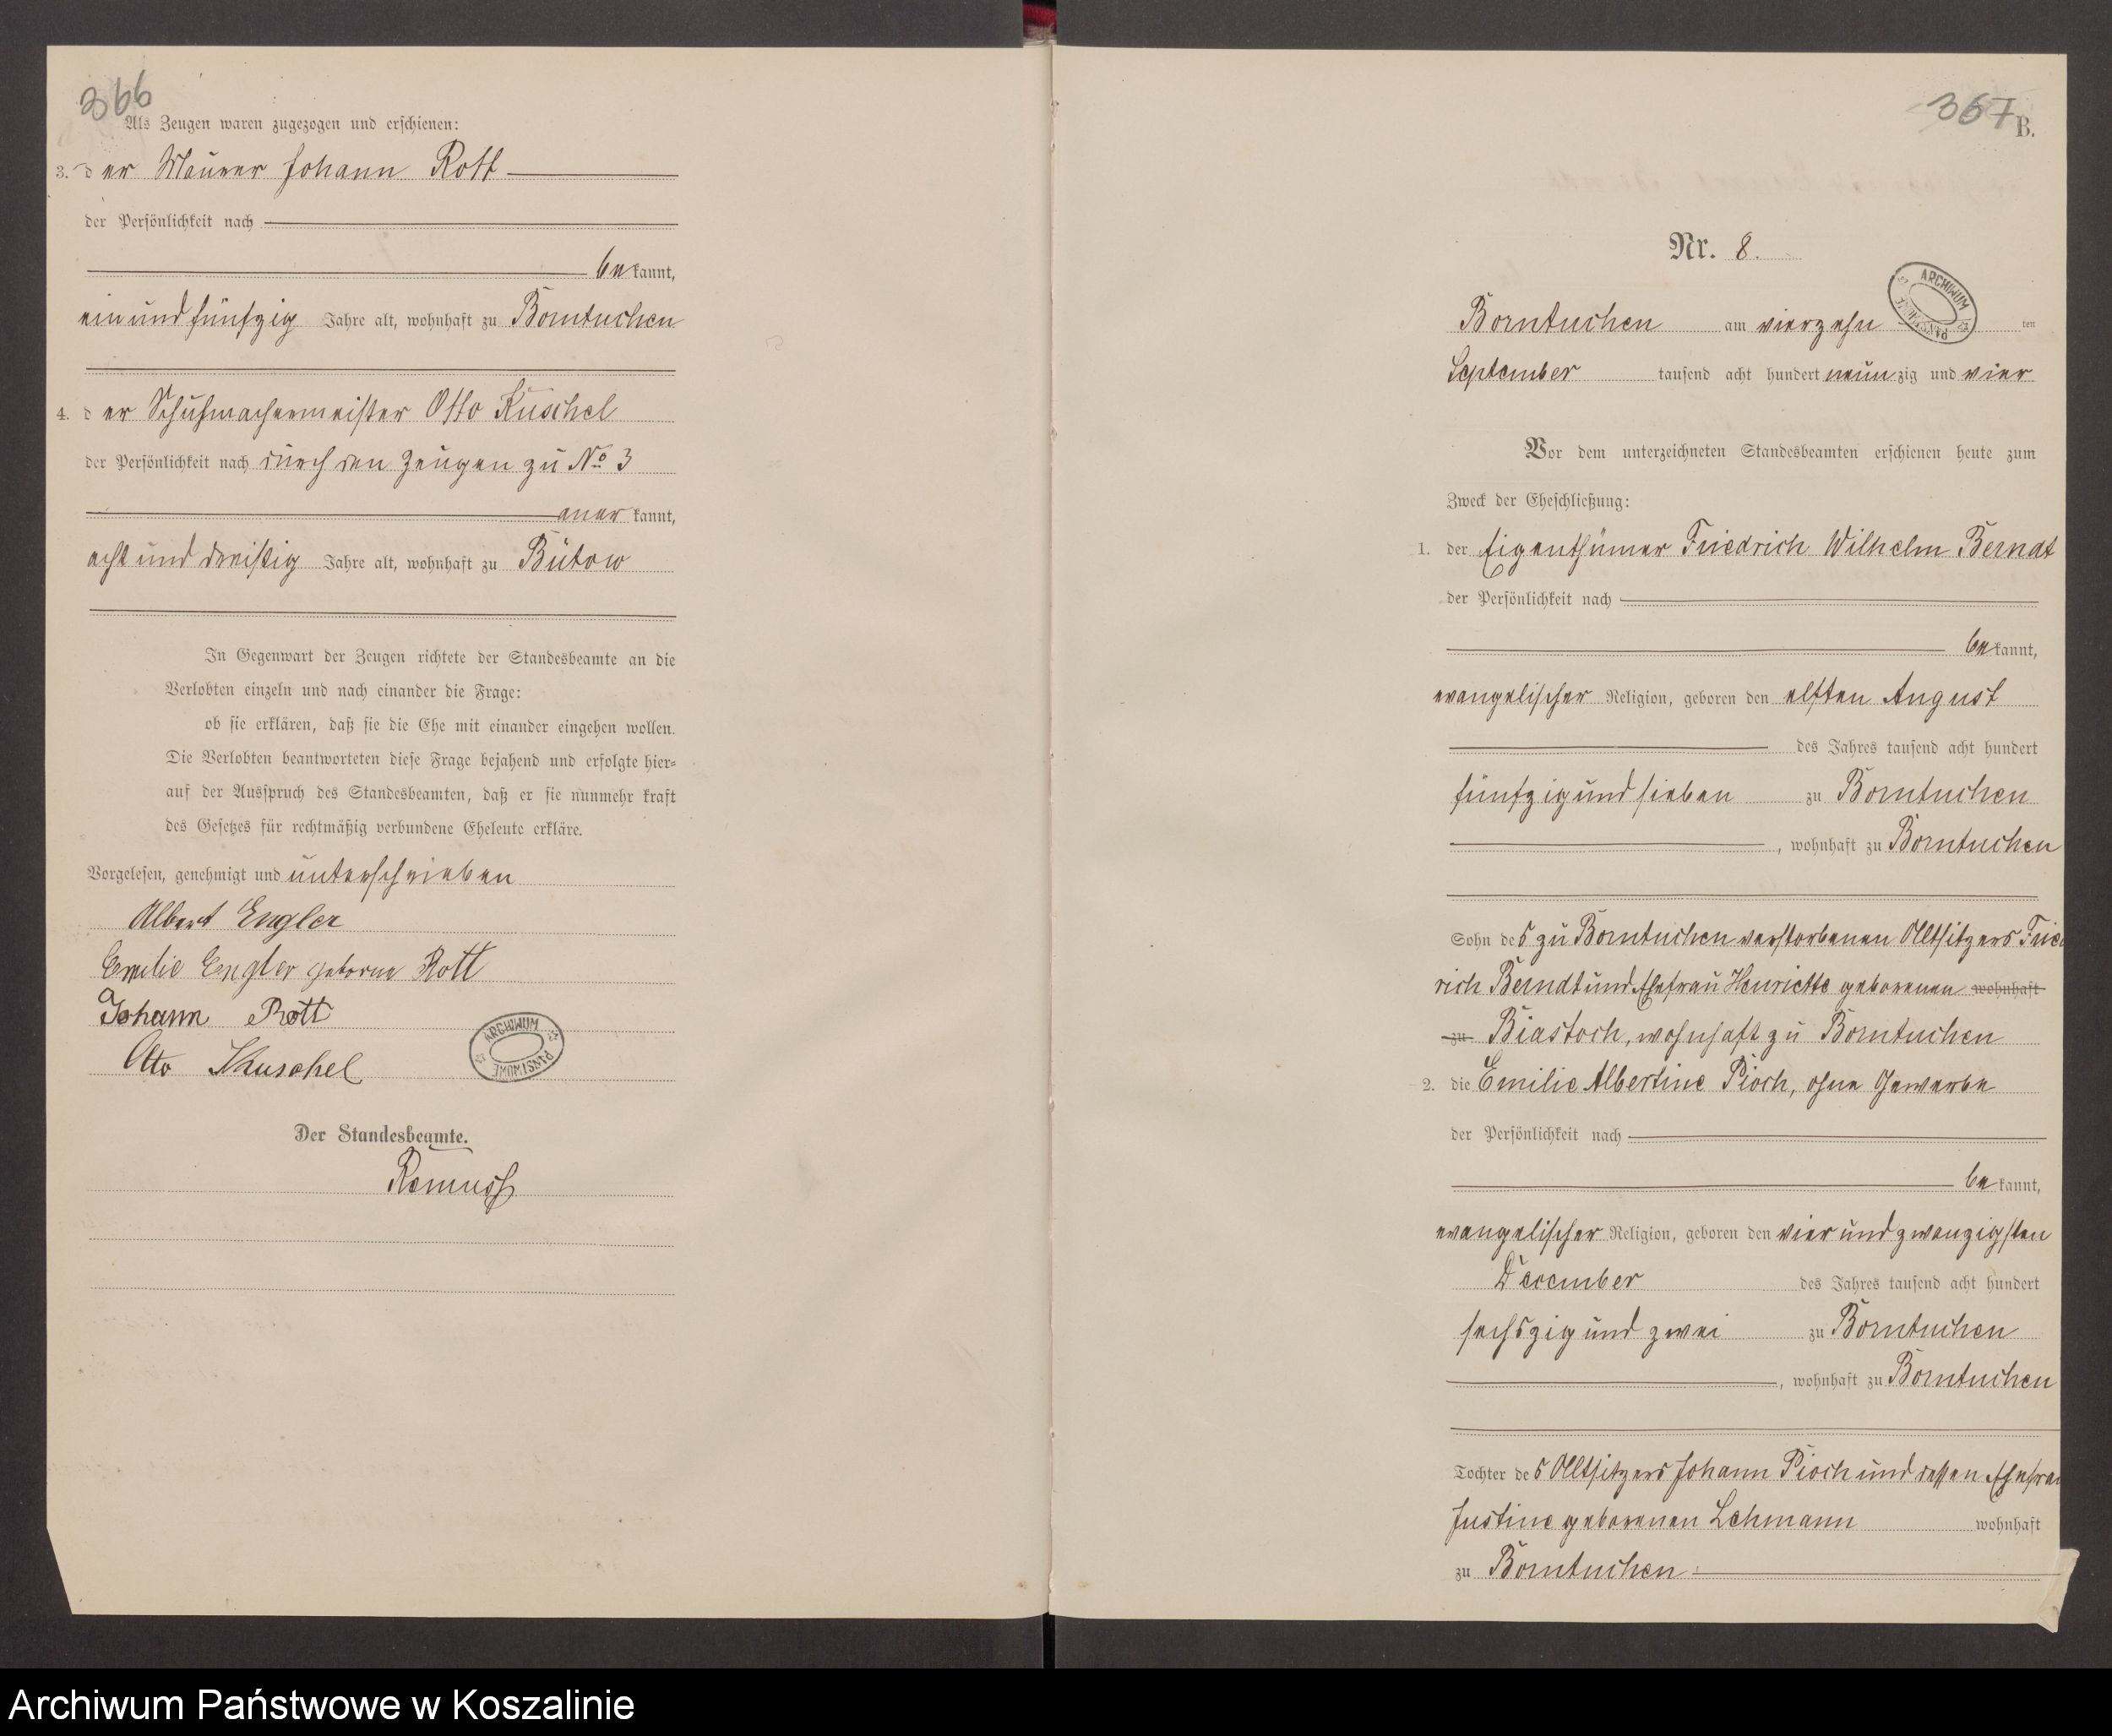 366
Als Zeugen waren zugezogen und erschienen:
3. der Maurer Johann Rott
der Persönlichkeit nach
bekannt,
ein und fünfzig Jahre alt, wohnhaft zu Borntuchen
4. der Schuhmachermeister Otto Kuschel
der Persönlichkeit nach durch den Zeugen zu No 3
anerkannt,
acht und dreißig Jahre alt, wohnhaft zu Bütow
In Gegenwart der Zeugen richtete der Standesbeamte an die
Verlobten einzeln und nach einander die Frage:
ob sie erklären, daß sie die Ehe mit einander eingehen wollen.
Die Verlobten beantworteten diese Frage bejahend und erfolgte hier=
auf der Ausspruch des Standesbeamten, daß er sie nunmehr kraft
des Gesetzes für rechtmäßig verbundene Eheleute erkläre.
Vorgelesen, genehmigt und unterschrieben
Albert Engler
Emilie Engler geborne Rott
Johann Rott
Otto Kuschel
ARCHIWUM PAŃSTWOWE
Der Standesbeamte.
Remuss
367
B.
Nr. 8.
ARCHIWUM PAŃSTWOWE
Borntuchen am vierzehn ten
September tausend acht hundert neunzig und vier
Vor dem unterzeichneten Standesbeamten erschienen heute zum
Zweck der Eheschließung:
1. der Eigenthümer Friedrich Wilhelm Berndt
der Persönlichkeit nach
bekannt,
evangelischer Religion, geboren den elften August
des Jahres tausend acht hundert
fünfzig und sieben zu Borntuchen
, wohnhaft zu Borntuchen
Sohn des zu Borntuchen verstorbenen Altsitzers Fried
rich Berndt und Ehefrau Henriette geborenen wohnhaft
zu Biastoch, wohnhaft zu Borntuchen
2. die Emilie Albertine Pioch, ohne Gewerbe
der Persönlichkeit nach
bekannt,
evangelischer Religion, geboren den vier und zwanzigsten
December des Jahres tausend acht hundert
sechszig und zwei zu Borntuchen
, wohnhaft zu Borntuchen
Tochter des Altsitzers Johann Pioch und dessen Ehefrau
Justine geborenen Lehmann wohnhaft
zu Borntuchen
Archiwum Państwowe w Koszalinie